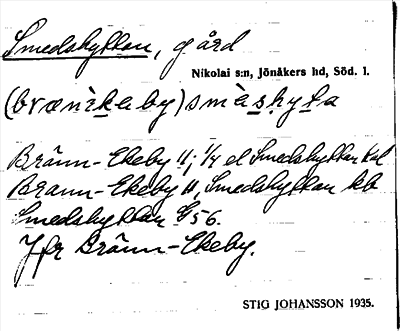 Smedshyttan, gård
Nikolai s:n, Jönåkers hd, Söd. l.
(bræǹìkeby) smàshyta
Bränn-Ekeby II; 1/4 el Smedshyttan
Brann-Ekeby II, Smedshyttan kb
Smedshyttan G 56.
Jfr Bränn-Ekeby.
STIG JOHANSSON 1935.